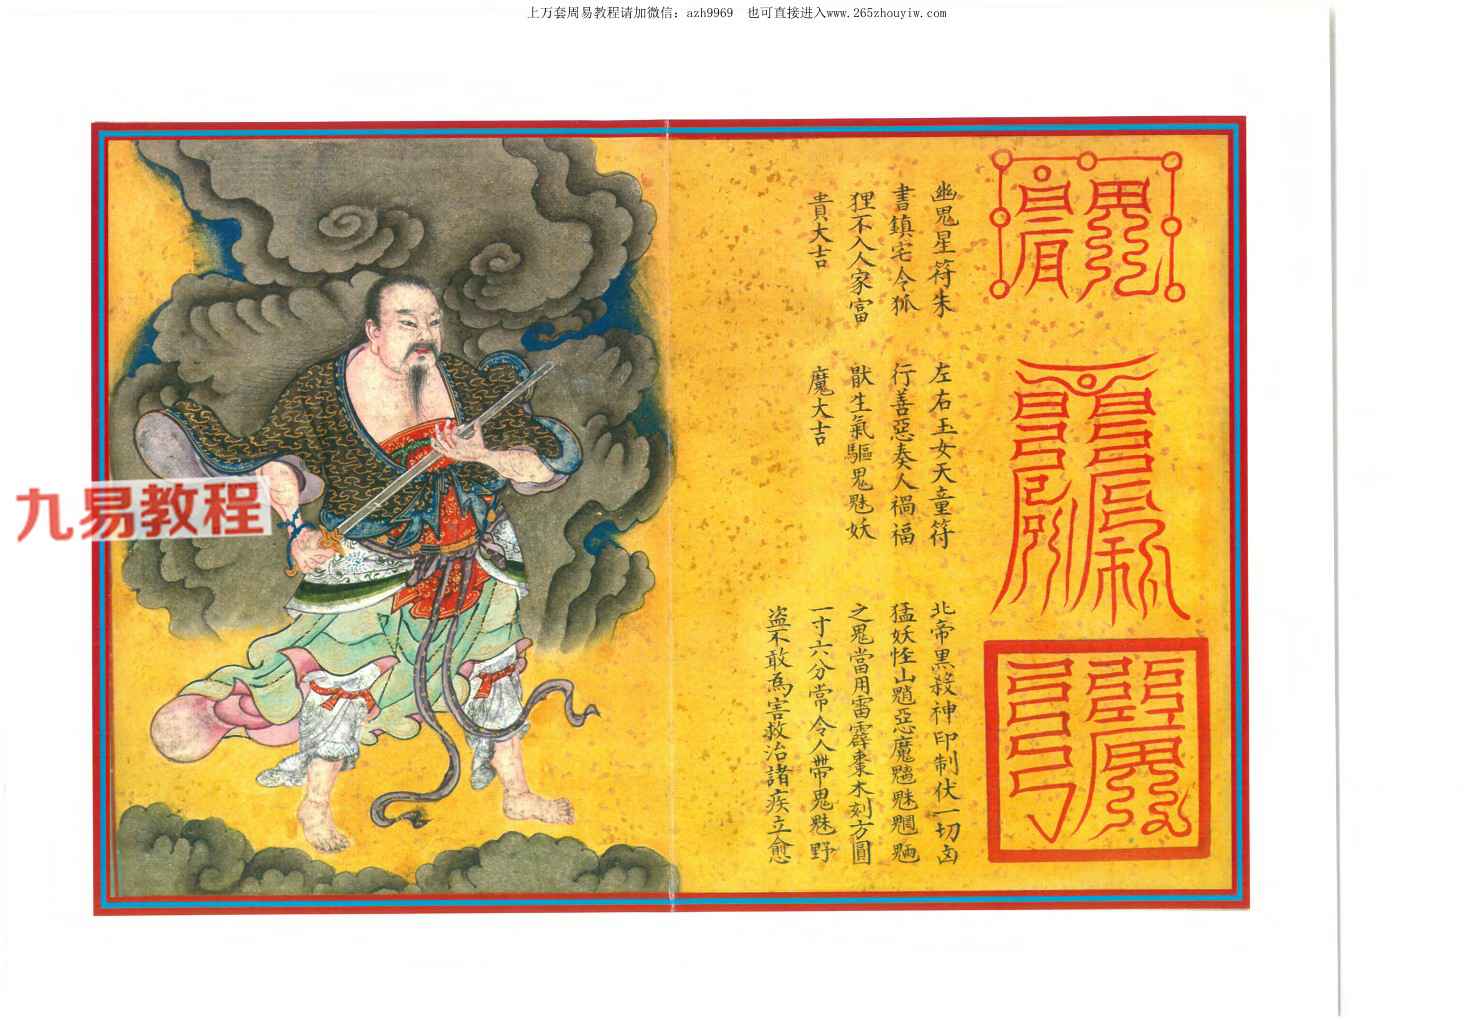 上万套周易教程请加微信：azh9969　也可直接进入www.265zhouyiw.com
幽鬼星符朱
書鎮宅令狐
狸不入人家富
貴大吉
左右玉女天童符
行善惡奏人禍福
猒生氣驅鬼魅妖
魔大吉
北帝黑殺神印制伏一切
猛妖恠山魈惡魔魅
之鬼當用雷霹棗木刻方圓
一寸六分常令人帶鬼魅野
盗不敢為害救治諸疾立愈
九易教程